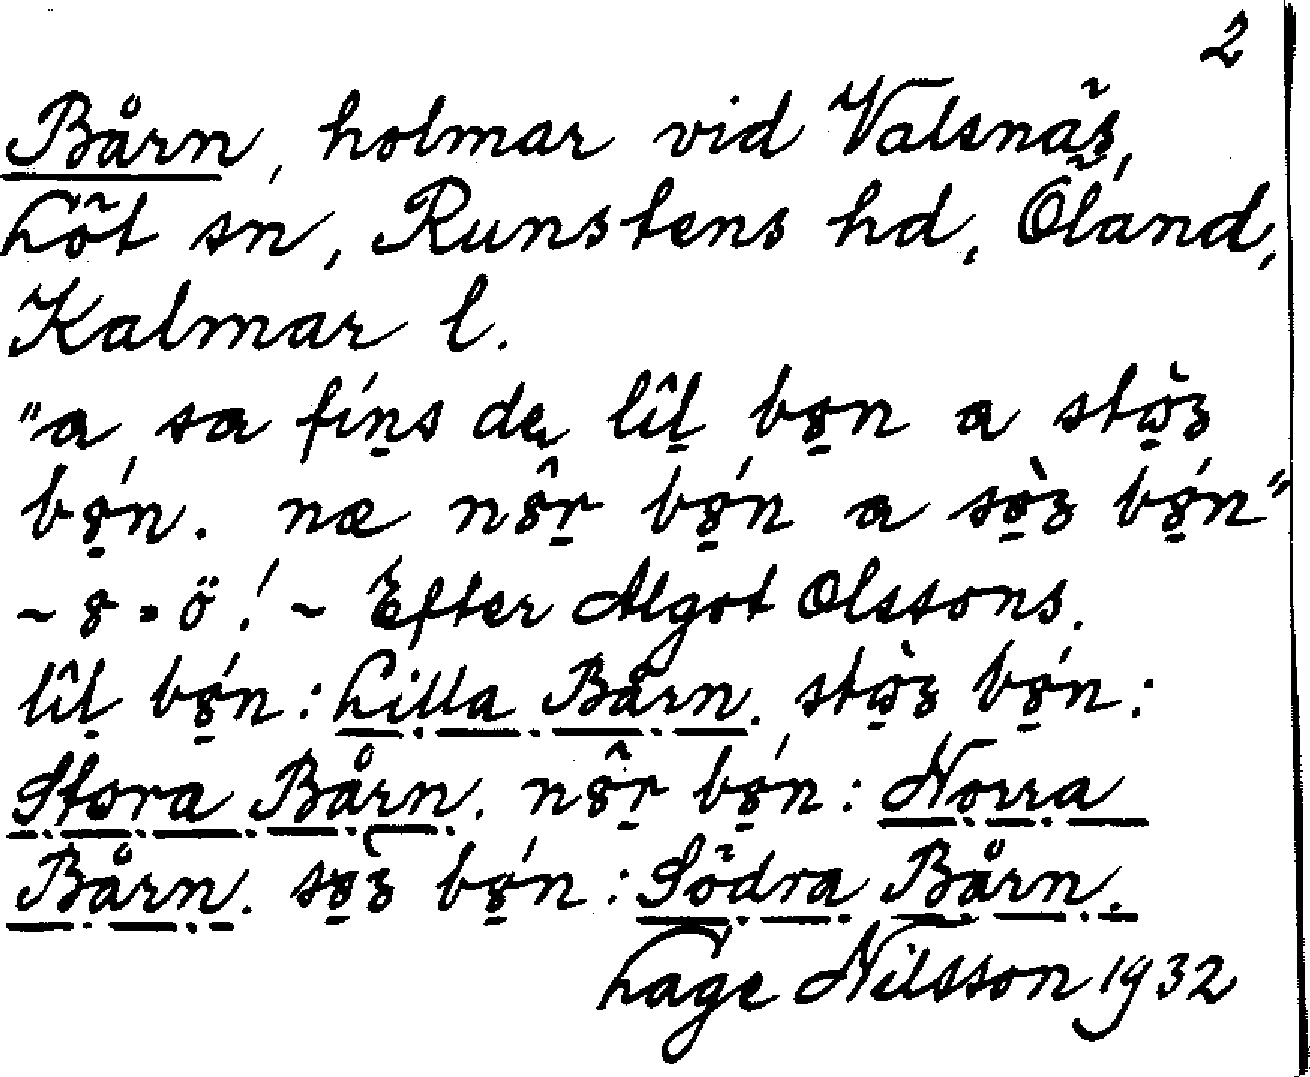 2
Bårn, holmar vid Valsnäs,
Löt sn, Runstens hd, Öland,
Kalmar l.
"a sa fíns de lîl bȣn a stòz
bȣ́n. næ nȣ̂r bȣ́n a sȣ̀z bȣ́n"
~ ȣ = ö! ~ Efter Algot Olssons.
lîl bȣ́n: Lilla Bårn. stòz bȣ́n:
Stora Bårn. nȣ̂r bȣ́n: Norra
Bårn. sȣ̀z bȣ́n: Södra Bårn.
Lage Nilsson 1932